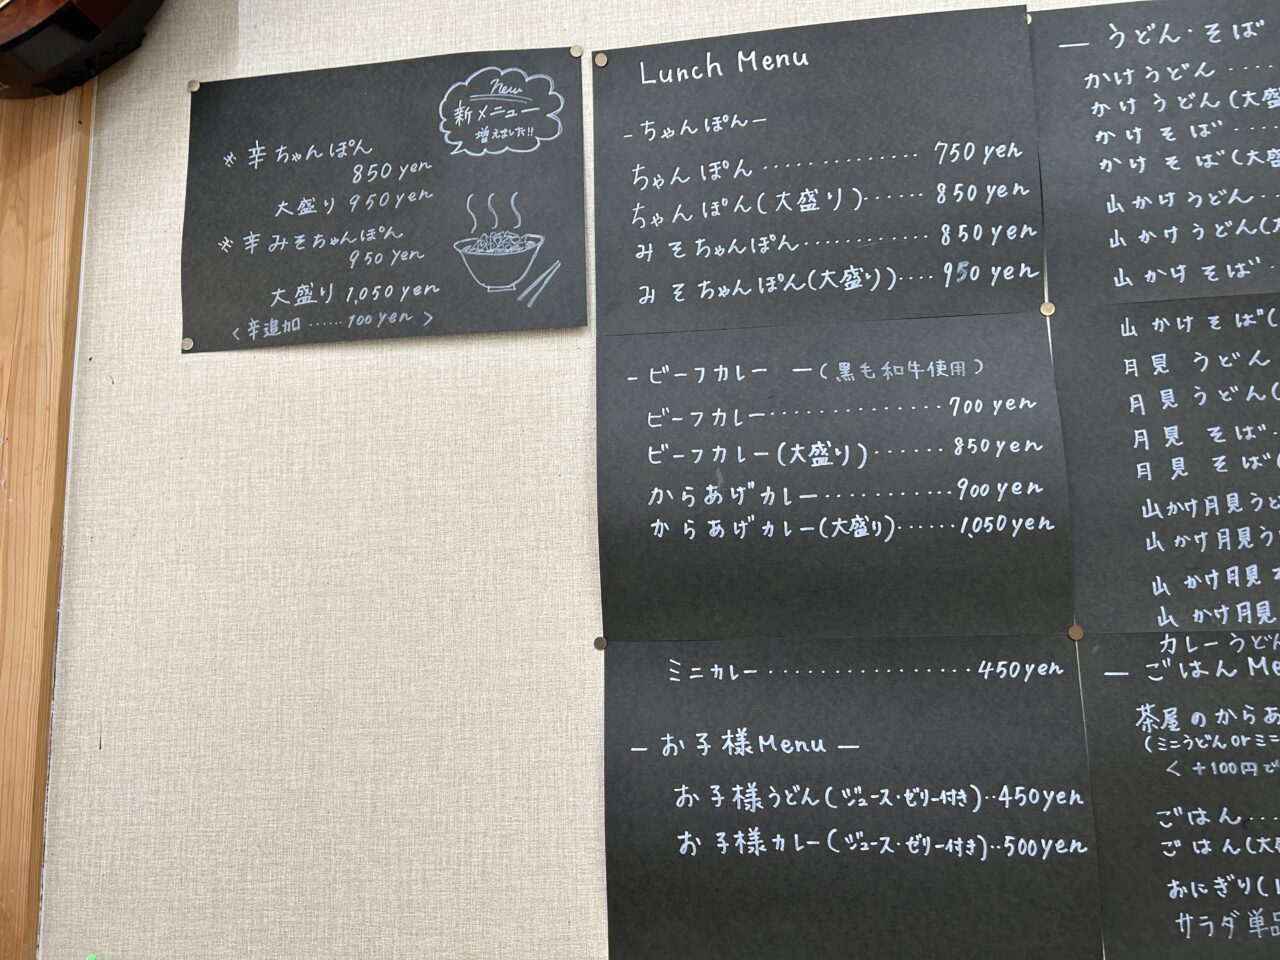 New
新メニュー
増えました!!
※ 辛ちゃんぽん
850yen
大盛り 950yen
※ 辛みそちゃんぽん
950yen
大盛り 1,050yen
< 辛追加 …… 100yen >
Lunch Menu
- ちゃんぽん -
ちゃんぽん ............... 750yen
ちゃんぽん(大盛り)...... 850yen
みそちゃんぽん............ 850yen
みそちゃんぽん(大盛り).... 950yen
- ビーフカレー - (黒毛和牛使用)
ビーフカレー............... 700yen
ビーフカレー(大盛り)...... 850yen
からあげカレー............ 900yen
からあげカレー(大盛り)...... 1,050yen
ミニカレー.................. 450yen
- お子様Menu -
お子様うどん(ジュース・ゼリー付き)..450yen
お子様カレー(ジュース・ゼリー付き)..500yen
- うどん・そば
かけうどん ....
かけうどん(大盛
かけそば ....
かけそば(大盛
山かけうどん..
山かけうどん(
山かけそば..
山かけそば(
月見うどん
月見うどん(
月見そば..
月見そば(
山かけ月見う
山かけ月見う
山かけ月見
山かけ月見
カレーうどん
- ごはん Me
茶屋のからあ
(ミニうどんorミニ
< +100円で
ごはん...
ごはん(大盛
おにぎり(
サラダ単品